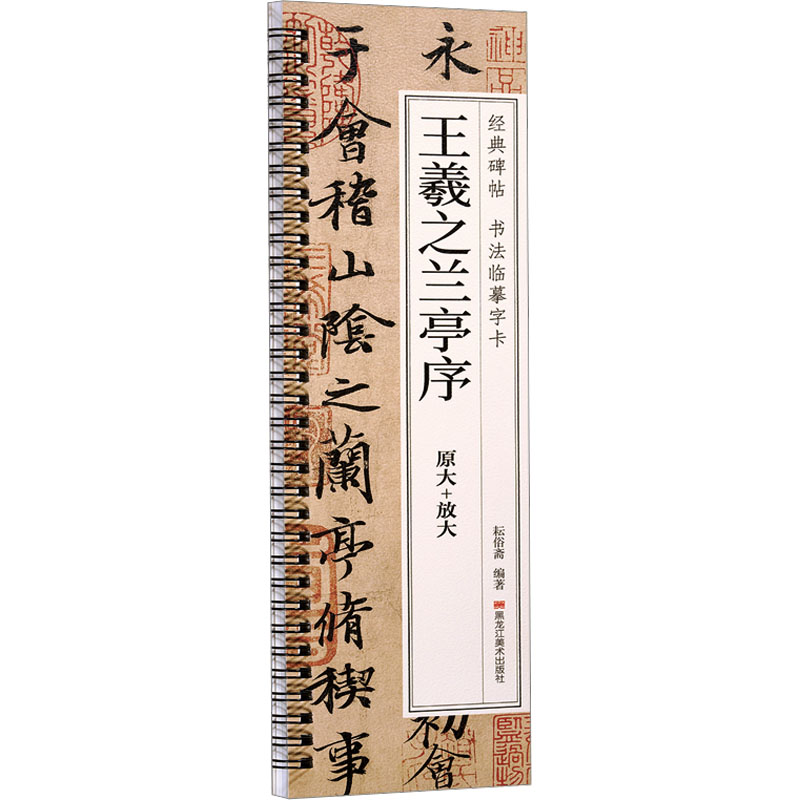 经典碑帖 书法临摹字卡
王羲之兰亭序
原大+放大
耘俗斋 编著
黑龙江美术出版社
永
初會
于會稽山陰之蘭亭脩稧事